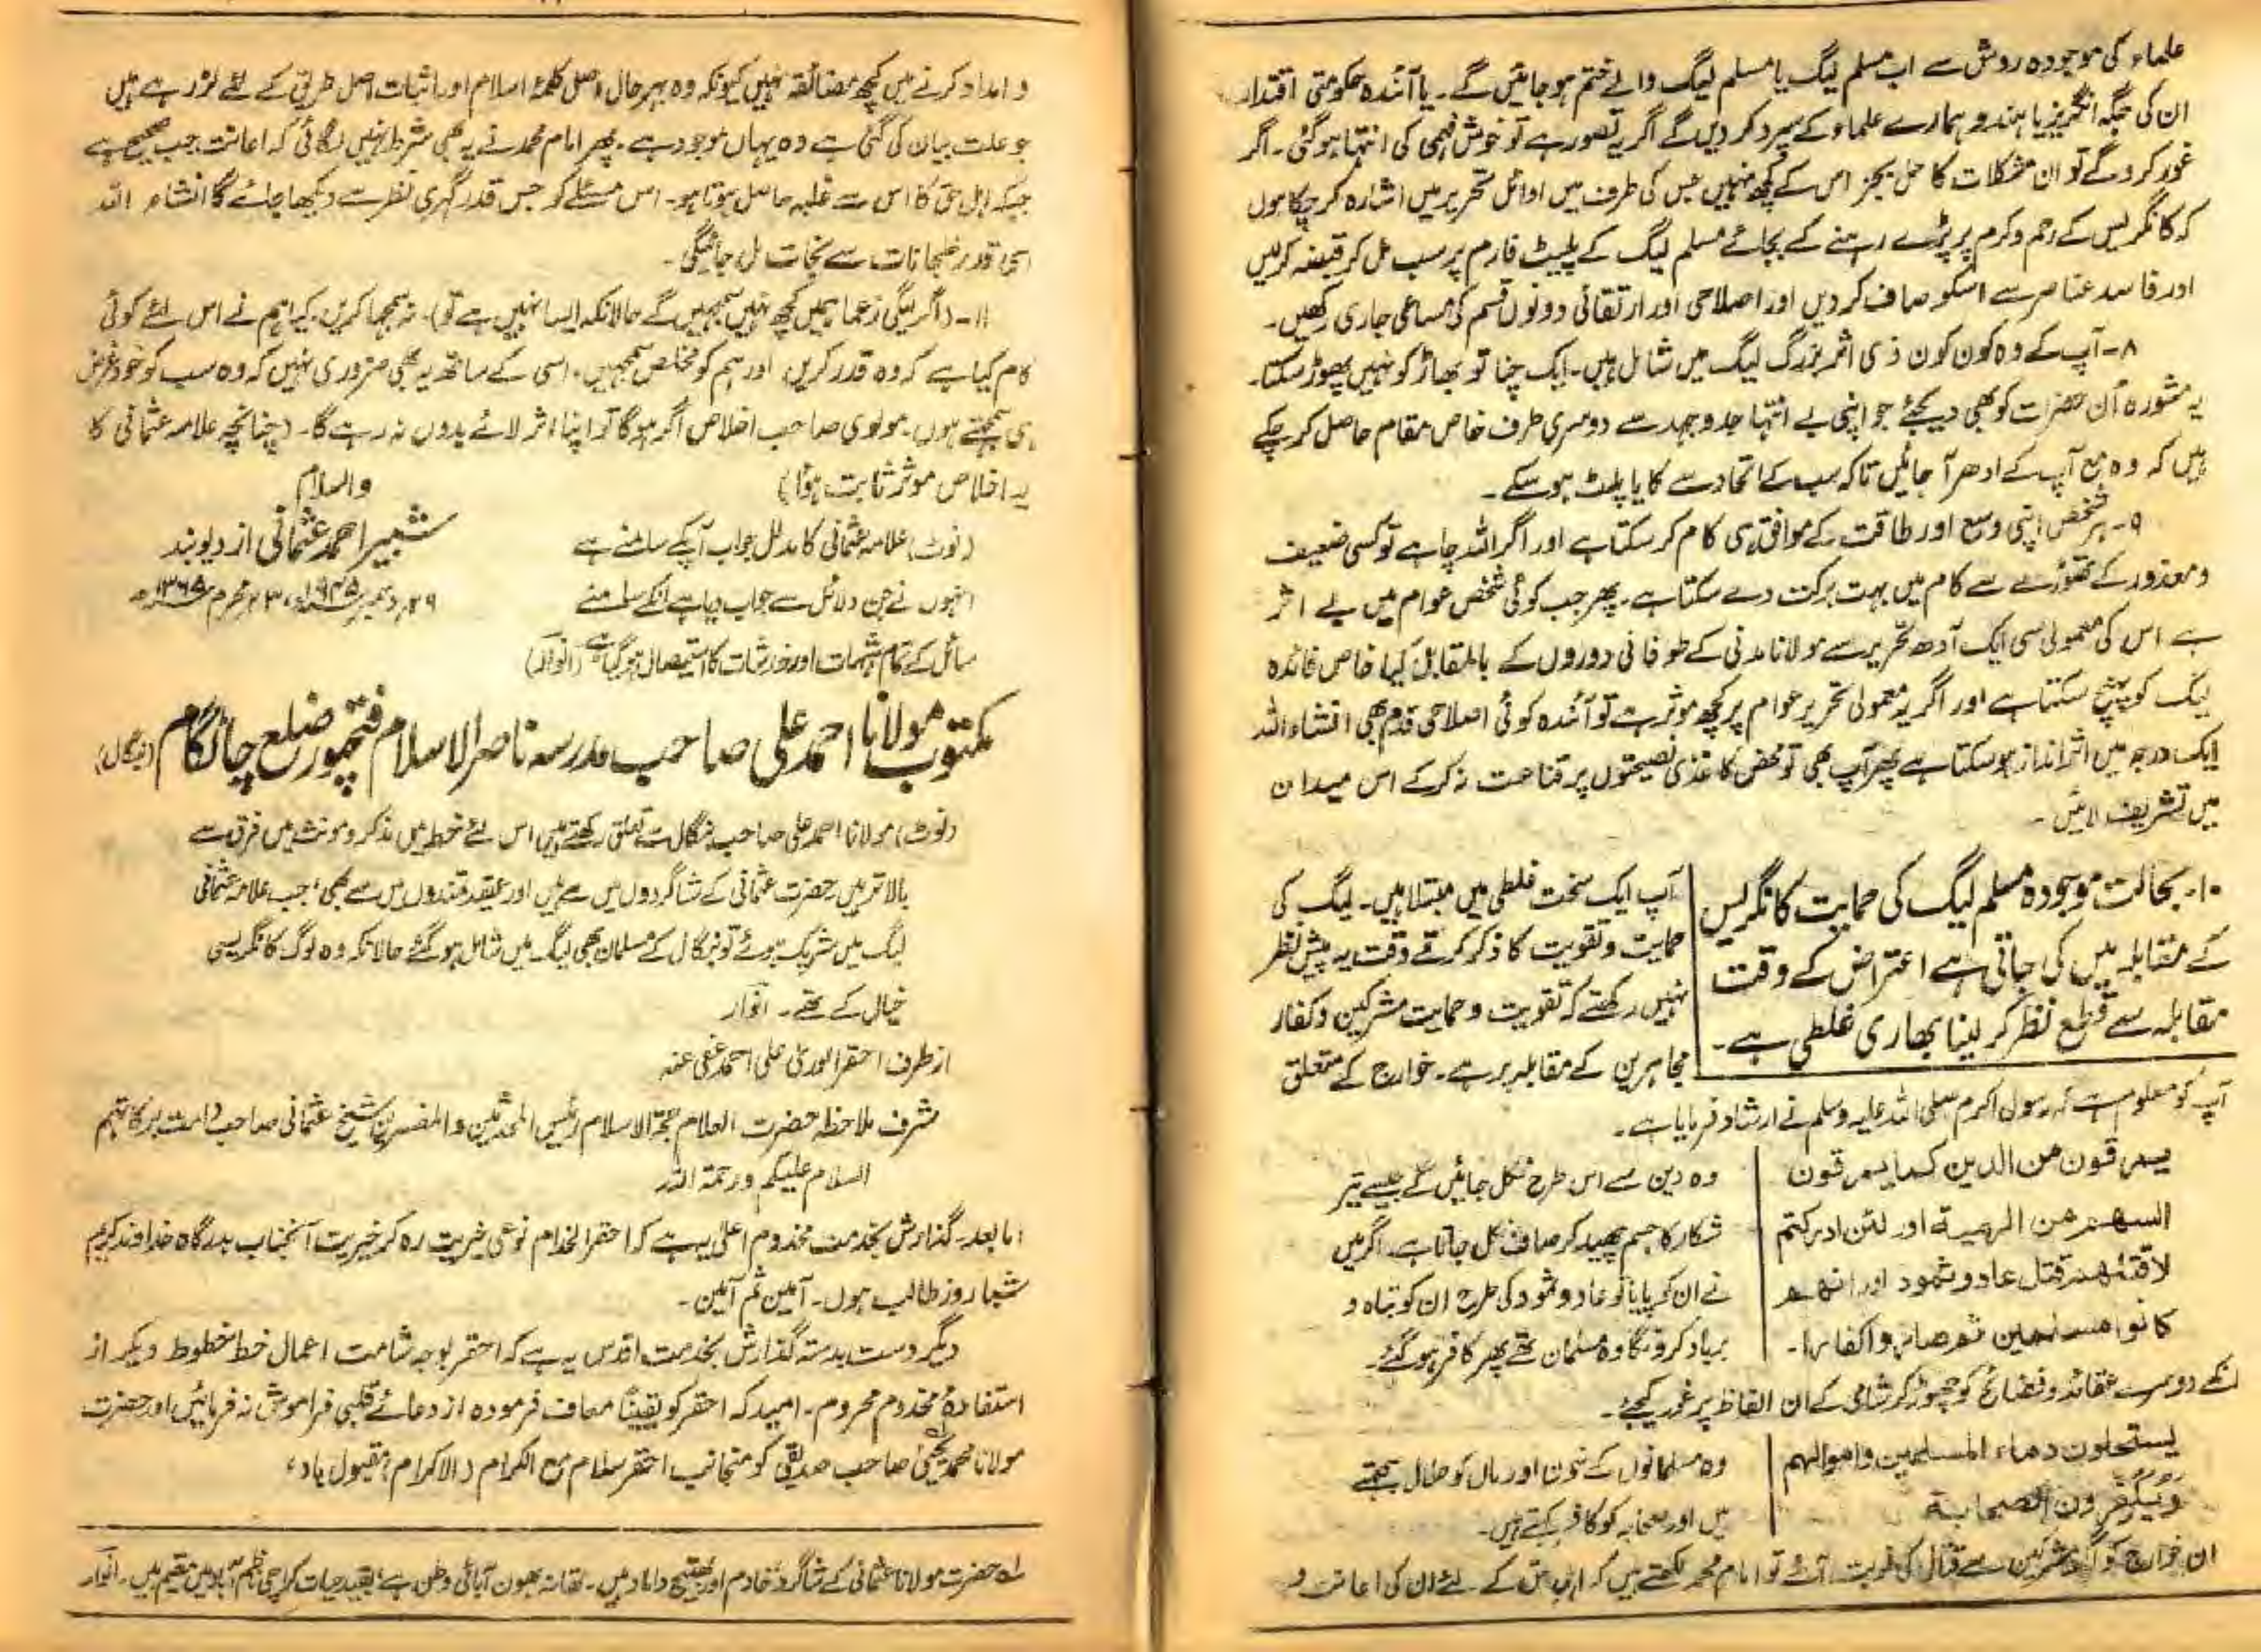 علماء کی موجودہ روش سے اب مسلم لیگ یا مسلم لیگ والے ختم ہو جائیں گے۔ یا آئندہ حکومتی اقتدار
ان کی جگہ انگریز یا ہندو ہمارے علماء کے سپرد کر دیں گے اگر یہ تصور ہے تو خوش فہمی کی انتہا ہو گئی۔ اگر
غور کرو گے تو ان مشکلات کا حل بجز اس کے کچھ نہیں جس کی طرف میں اوائل تحریر میں اشارہ کر چکا ہوں
کہ کانگریس کے رحم و کرم پر پڑے رہنے کے بجائے مسلم لیگ کے پلیٹ فارم پر سب مل کر قبضہ کر لیں
اور فاسد عناصر سے اسکو صاف کر دیں اور اصلاحی اور ارتقائی دونوں قسم کی مساعی جاری رکھیں۔
۸۔ آپ کے وہ کون کون ذی اثر بزرگ لیگ میں شامل ہیں۔ ایک چنا تو بھاڑ کو نہیں پھوڑ سکتا۔
یہ مشورہ اُن حضرات کو بھی دیجئے جو اپنی بے انتہا جدوجہد سے دوسری طرف خاص مقام حاصل کر چکے
ہیں کہ وہ مع آپ کے ادھر آ جائیں تاکہ سب کے اتحاد سے کایا پلٹ ہو سکے۔
۹۔ ہر شخص اپنی وسع اور طاقت کے موافق ہی کام کر سکتا ہے اور اگر اللہ چاہے تو کسی ضعیف
و معذور کے تھوڑے سے کام میں بہت برکت دے سکتا ہے۔ پھر جب کوئی شخص عوام میں بے اثر
ہے اس کی معمولی سی ایک آدھ تحریر سے مولانا مدنی کے طوفانی دوروں کے بالمقابل کیا خاص فائدہ
لیگ کو پہنچ سکتا ہے اور اگر یہ معمولی تحریر عوام پر کچھ موثر ہے تو آئندہ کوئی اصلاحی قدم بھی انشاء اللہ
ایک درجہ میں اثر انداز ہو سکتا ہے پھر آپ بھی تو محض کاغذی نصیحتوں پر قناعت نہ کر کے اس میدان
میں تشریف لائیں۔
۱۰۔ بحالت موجودہ مسلم لیگ کی حمایت کانگریس
کے مقابلہ میں کی جاتی ہے اعتراض کے وقت
مقابلہ سے قطع نظر کر لینا بھاری غلطی ہے۔
آپ ایک سخت غلطی میں مبتلا ہیں۔ لیگ کی
حمایت و تقویت کا ذکر کرتے وقت یہ پیش نظر
نہیں رکھتے کہ تقویت و حمایت مشرکین و کفار
مجاہرین کے مقابلہ پر ہے۔ خوارج کے متعلق
آپ کو معلوم ہے کہ رسول اکرم صلی اللہ علیہ وسلم نے ارشاد فرمایا ہے۔
یمرقون من الدین کما یمرقون
السهم من الرمیة اور لئن ادرکتم
لاقتلنهم قتل عاد و ثمود اور انهم
کانوا مسلمین ثم صاروا کفارا۔
وہ دین سے اس طرح نکل جائیں گے جیسے تیر
شکار کا جسم چھید کر صاف نکل جاتا ہے۔ اگر میں
نے ان کو پایا تو عاد و ثمود کی طرح ان کو تباہ و
برباد کرونگا وہ مسلمان تھے پھر کافر ہو گئے۔
انکے دوسرے عقائد و فضائح کو چھوڑ کر شامی کے ان الفاظ پر غور کیجئے۔
یستحلون دماء المسلمین و اموالهم
و یکفرون الصحابة
وہ مسلمانوں کے خون اور مال کو حلال سمجھتے
ہیں اور صحابہ کو کافر کہتے ہیں۔
ان خوارج کو اگر مشرکین سے قتال کی نوبت آئے تو امام محمد لکھتے ہیں کہ اہل حق کے لئے ان کی اعانت و
و امداد کرنے میں کچھ مضائقہ نہیں کیونکہ وہ بہر حال اصل کلمۂ اسلام اور اثبات اصل طریق کے لئے لڑ رہے ہیں
جو علت بیان کی گئی ہے وہ یہاں موجود ہے۔ پھر امام محمد نے یہ بھی شرط نہیں لگائی کہ اعانت جب صحیح ہے
جبکہ اہل حق کا اس سے غلبہ حاصل ہوتا ہو۔ اس مسئلے کو جس قدر گہری نظر سے دیکھا جائے گا انشاء اللہ
اسی قدر خلجانات سے نجات مل جائیگی۔
۱۱۔ (اگر لیگی زعما ہمیں کچھ نہیں سمجھیں گے حالانکہ ایسا نہیں ہے تو)۔ نہ سمجھا کریں۔ کیا ہم نے اس لئے کوئی
کام کیا ہے کہ وہ قدر کریں، اور ہم کو مخلص سمجھیں۔ اسی کے ساتھ یہ بھی ضروری نہیں کہ وہ سب کو خود غرض
ہی سمجھتے ہوں۔ مولوی صاحب اخلاص اگر ہو گا تو اپنا اثر لائے بدوں نہ رہے گا۔ (چنانچہ علامہ عثمانی کا
یہ اخلاص موثر ثابت ہوا)
والسلام
شبیر احمد عثمانی از دیوبند
۲۹ دسمبر ۱۹۴۵ء، ۲۳ محرم ۱۳۶۵ھ
(نوٹ) علامہ عثمانی کا مدلل جواب آپ کے سامنے ہے
انہوں نے جن دلائل سے جواب دیا ہے انکے سامنے
سائل کے تمام شبہات اور خدشات کا استیصال ہو گیا ہے (انوار)
مکتوب مولانا احمد علی صاحب مدرسہ ناصر الاسلام فتحپور ضلع چاٹگام (بنگال)
(نوٹ) مولانا احمد علی صاحب بنگال سے تعلق رکھتے ہیں اس لئے خط میں مذکر و مونث میں فرق سے
بالاتر ہیں حضرت عثمانی کے شاگردوں میں سے ہیں اور عقیدتمندوں میں سے بھی، جب علامہ عثمانی
لیگ میں شریک ہوئے تو بنگال کے مسلمان بھی لیگ میں شامل ہو گئے حالانکہ وہ لوگ کانگریسی
خیال کے تھے۔ انوار
از طرف احقر الوریٰ علی احمد عفی عنہ
مشرف ملاحظہ حضرت العلام حجۃ الاسلام رئیس المحدثین والمفسرین شیخ عثمانی صاحب دامت برکاتہم
السلام علیکم ورحمۃ اللہ
اما بعد۔ گذارش بخدمت مخدوم اعلیٰ یہ ہے کہ احقر الخدام نوعی خیریت رہ کر خیریت آنجناب بدرگاہ خداوند کریم
شبا روز طالب ہوں۔ آمین ثم آمین۔
دیگر دست بدستہ گذارش بخدمت اقدس یہ ہے کہ احقر بوجہ شامت اعمال خط خطوط دیگر از
استفادۂ مخدوم محروم۔ امید کہ احقر کو یقیناً معاف فرمودہ از دعائے قلبی فراموش نہ فرمائیں اور حضرت
مولانا محمد یحییٰ لہ صاحب صدیقی کو منجانب احقر سلام مع الکرام (الاکرام) مقبول باد،
لہ حضرت مولانا عثمانی کے شاگرد خادم اور بھتیج داماد ہیں۔ تھانہ بھون آبائی وطن ہے، بقید حیات کراچی ناظم آباد میں مقیم ہیں۔ انوار